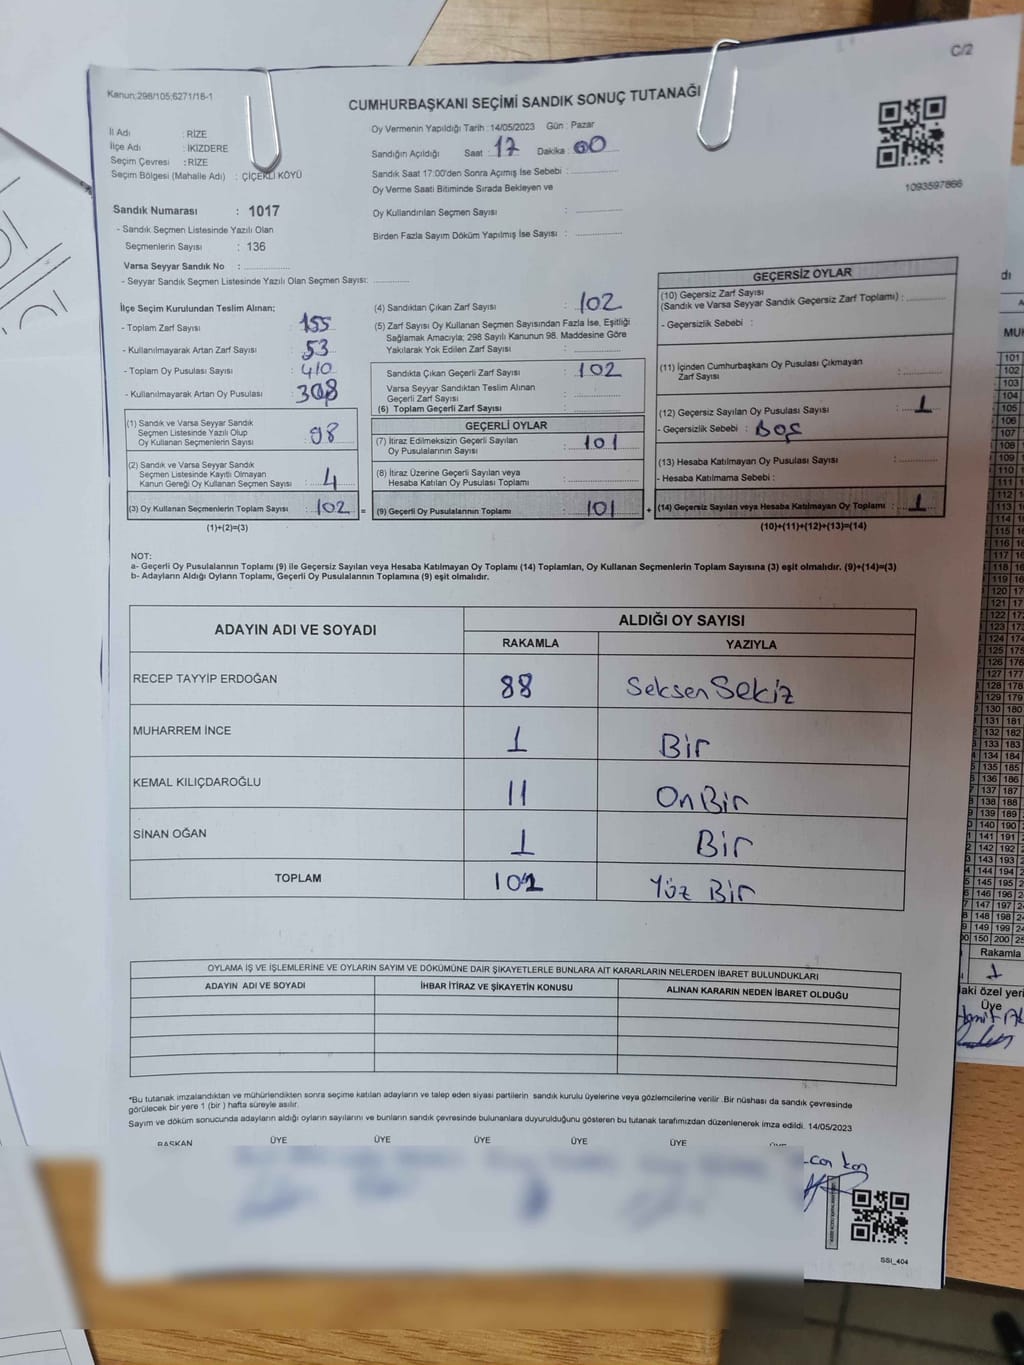 C/2
Kanun:298/105;6271/16-1
CUMHURBAŞKANI SEÇİMİ SANDIK SONUÇ TUTANAĞI
İl Adı : RİZE
İlçe Adı : İKİZDERE
Seçim Çevresi : RİZE
Seçim Bölgesi (Mahalle Adı) : ÇİÇEKLİ KÖYÜ
Oy Vermenin Yapıldığı Tarih : 14/05/2023 Gün : Pazar
Sandığın Açıldığı Saat : 17 Dakika : 00
Sandık Saat 17:00'den Sonra Açımış İse Sebebi :
Oy Verme Saati Bitiminde Sırada Bekleyen ve
Oy Kullandırılan Seçmen Sayısı :
Birden Fazla Sayım Döküm Yapılmış İse Sayısı :
1093597866
Sandık Numarası : 1017
- Sandık Seçmen Listesinde Yazılı Olan
Seçmenlerin Sayısı : 136
Varsa Seyyar Sandık No :
- Seyyar Sandık Seçmen Listesinde Yazılı Olan Seçmen Sayısı:
İlçe Seçim Kurulundan Teslim Alınan;
- Toplam Zarf Sayısı : 155
- Kullanılmayarak Artan Zarf Sayısı : 53
- Toplam Oy Pusulası Sayısı : 410
- Kullanılmayarak Artan Oy Pusulası : 308
(1) Sandık ve Varsa Seyyar Sandık
Seçmen Listesinde Yazılı Olup
Oy Kullanan Seçmenlerin Sayısı : 98
(2) Sandık ve Varsa Seyyar Sandık
Seçmen Listesinde Kayıtlı Olmayan
Kanun Gereği Oy Kullanan Seçmen Sayısı : 4
(3) Oy Kullanan Seçmenlerin Toplam Sayısı : 102 =
(1)+(2)=(3)
(4) Sandıktan Çıkan Zarf Sayısı : 102
(5) Zarf Sayısı Oy Kullanan Seçmen Sayısından Fazla İse, Eşitliği
Sağlamak Amacıyla; 298 Sayılı Kanunun 98. Maddesine Göre
Yakılarak Yok Edilen Zarf Sayısı :
Sandıkta Çıkan Geçerli Zarf Sayısı : 102
Varsa Seyyar Sandıktan Teslim Alınan
Geçerli Zarf Sayısı :
(6) Toplam Geçerli Zarf Sayısı :
GEÇERLİ OYLAR
(7) İtiraz Edilmeksizin Geçerli Sayılan
Oy Pusulalarının Sayısı : 101
(8) İtiraz Üzerine Geçerli Sayılan veya
Hesaba Katılan Oy Pusulası Toplamı :
(9) Geçerli Oy Pusulalarının Toplamı : 101 +
GEÇERSİZ OYLAR
(10) Geçersiz Zarf Sayısı
(Sandık ve Varsa Seyyar Sandık Geçersiz Zarf Toplamı) :
- Geçersizlik Sebebi :
(11) İçinden Cumhurbaşkanı Oy Pusulası Çıkmayan
Zarf Sayısı :
(12) Geçersiz Sayılan Oy Pusulası Sayısı : 1
- Geçersizlik Sebebi : Boş
(13) Hesaba Katılmayan Oy Pusulası Sayısı :
- Hesaba Katılmama Sebebi :
(14) Geçersiz Sayılan veya Hesaba Katılmayan Oy Toplamı : 1
(10)+(11)+(12)+(13)=(14)
NOT:
a- Geçerli Oy Pusulalarının Toplamı (9) ile Geçersiz Sayılan veya Hesaba Katılmayan Oy Toplamı (14) Toplamları, Oy Kullanan Seçmenlerin Toplam Sayısına (3) eşit olmalıdır. (9)+(14)=(3)
b- Adayların Aldığı Oyların Toplamı, Geçerli Oy Pusulalarının Toplamına (9) eşit olmalıdır.
ADAYIN ADI VE SOYADI
ALDIĞI OY SAYISI
RAKAMLA YAZIYLA
RECEP TAYYİP ERDOĞAN 88 Seksen Sekiz
MUHARREM İNCE 1 Bir
KEMAL KILIÇDAROĞLU 11 On Bir
SİNAN OĞAN 1 Bir
TOPLAM 101 Yüz Bir
OYLAMA İŞ VE İŞLEMLERİNE VE OYLARIN SAYIM VE DÖKÜMÜNE DAİR ŞİKAYETLERLE BUNLARA AİT KARARLARIN NELERDEN İBARET BULUNDUKLARI
ADAYIN ADI VE SOYADI İHBAR İTİRAZ VE ŞİKAYETİN KONUSU ALINAN KARARIN NEDEN İBARET OLDUĞU
*Bu tutanak imzalandıktan ve mühürlendikten sonra seçime katılan adayların ve talep eden siyasi partilerin sandık kurulu üyelerine veya gözlemcilerine verilir. Bir nüshası da sandık çevresinde
görülecek bir yere 1 (bir) hafta süreyle asılır.
Sayım ve döküm sonucunda adayların aldığı oyların sayılarını ve bunların sandık çevresinde bulunanlara duyurulduğunu gösteren bu tutanak tarafımızdan düzenlenerek imza edildi. 14/05/2023
BAŞKAN ÜYE ÜYE ÜYE ÜYE ÜYE
SSİ_404
Rakamla
1
Üye